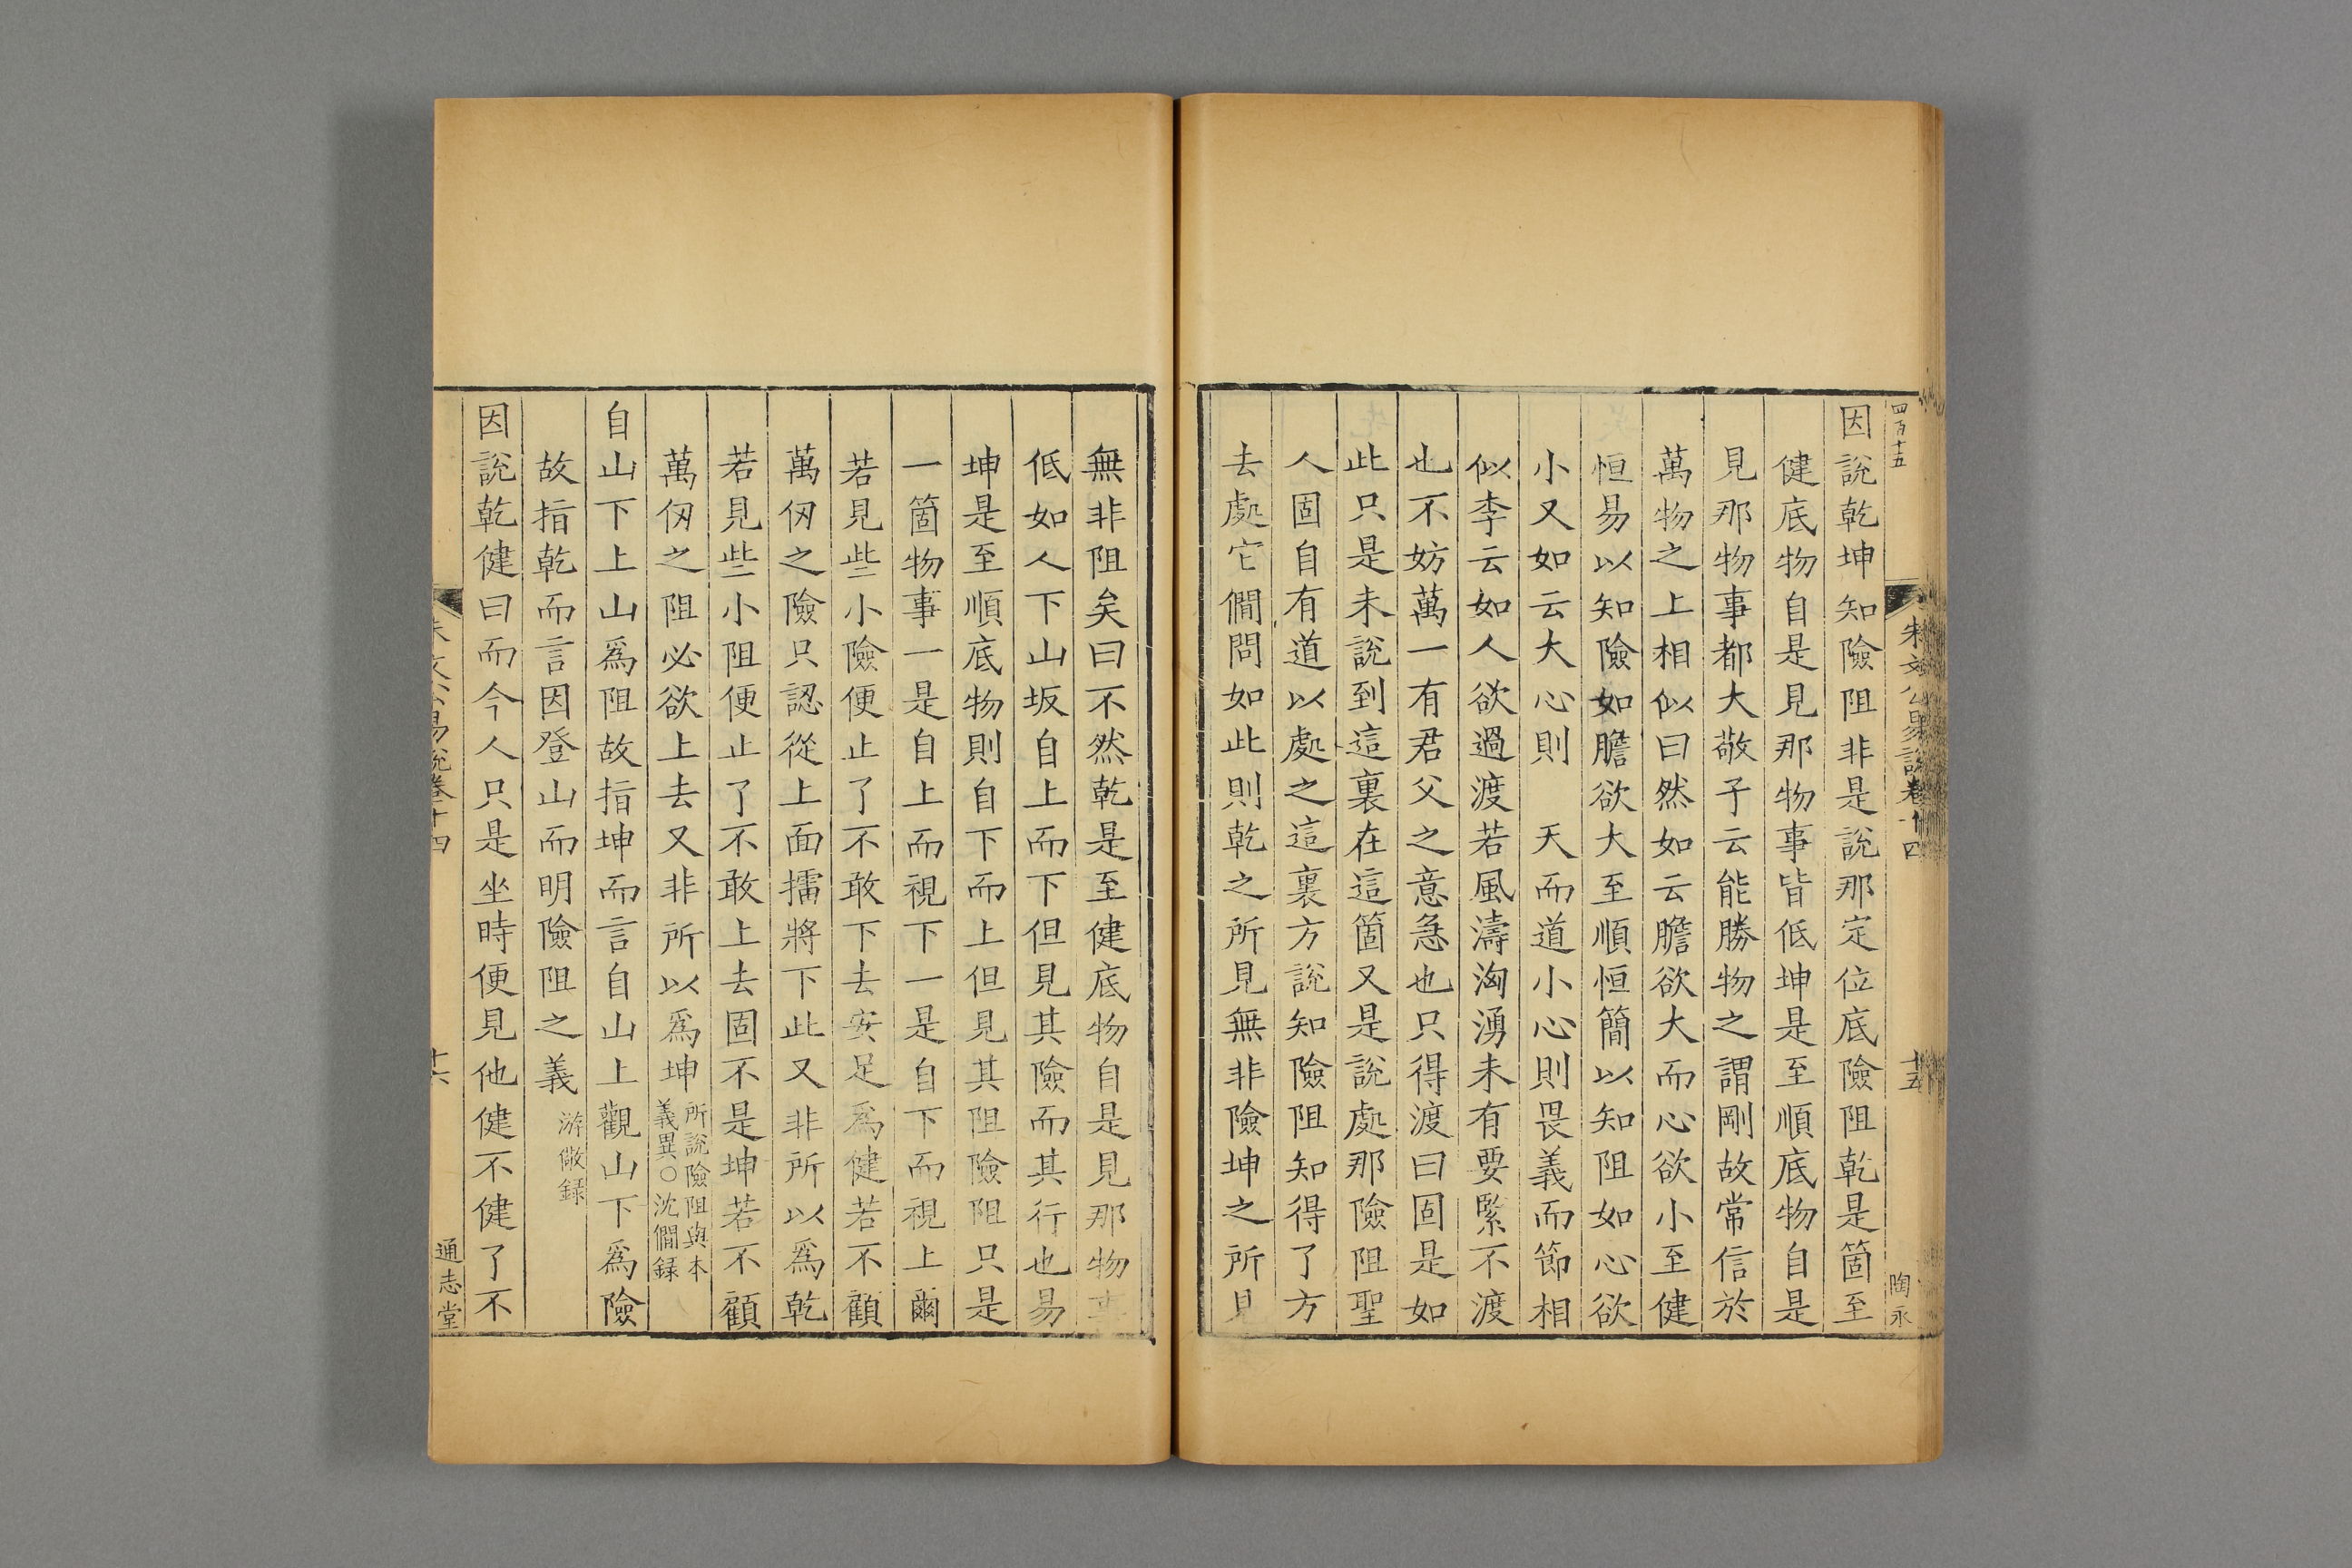 四百十五
朱文公易說卷十四
十五
陶永
因說乾坤知險阻非是說那定位底險阻乾是箇至
健底物自是見那物事皆低坤是至順底物自是
見那物事都大敬子云能勝物之謂剛故常信於
萬物之上相似曰然如云膽欲大而心欲小至健
恒易以知險如膽欲大至順恒簡以知阻如心欲
小又如云大心則 天而道小心則畏義而節相
似李云如人欲過渡若風濤洶湧未有要緊不渡
也不妨萬一有君父之意急也只得渡曰固是如
此只是未說到這裏在這箇又是說處那險阻聖
人固自有道以處之這裏方說知險阻知得了方
去處它僩問如此則乾之所見無非險坤之所見
無非阻矣曰不然乾是至健底物自是見那物
低如人下山坂自上而下但見其險而其行也易
坤是至順底物則自下而上但見其阻險阻只是
一箇物事一是自上而視下一是自下而視上爾
若見些小險便止了不敢下去安足爲健若不顧
萬仞之險只認從上面擂將下此又非所以爲乾
若見些小阻便止了不敢上去固不是坤若不顧
萬仞之阻必欲上去又非所以爲坤所說險阻與本
義異○沈僩録
自山下上山爲阻故指坤而言自山上觀山下爲險
故指乾而言因登山而明險阻之義游儆録
因說乾健曰而今人只是坐時便見他健不健了不
朱文公易說卷十四
十六
通志堂